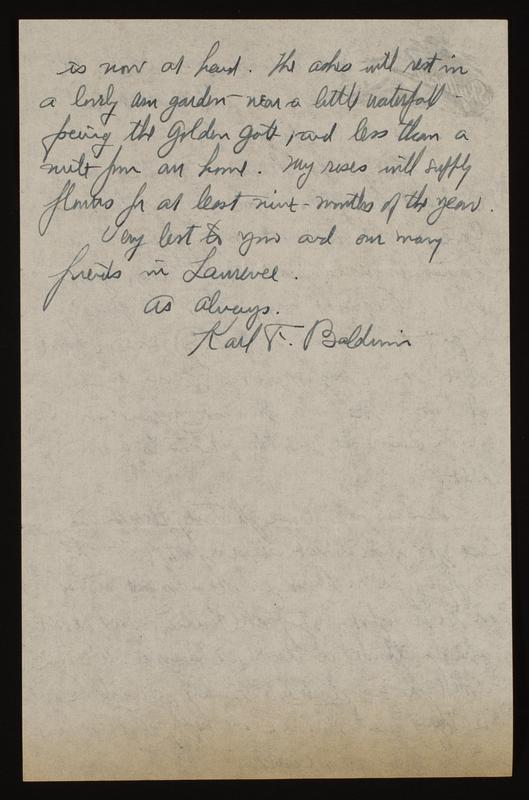 is now at hand. The ashes will rest in
a lovely urn garden - near a little waterfall -
facing the Golden Gate, and less than a
mile from our home. My roses will supply
flowers for at least nine-months of the year.
Very best to you and our many
friends in Lawrence.
As always.
Karl F. Baldwin